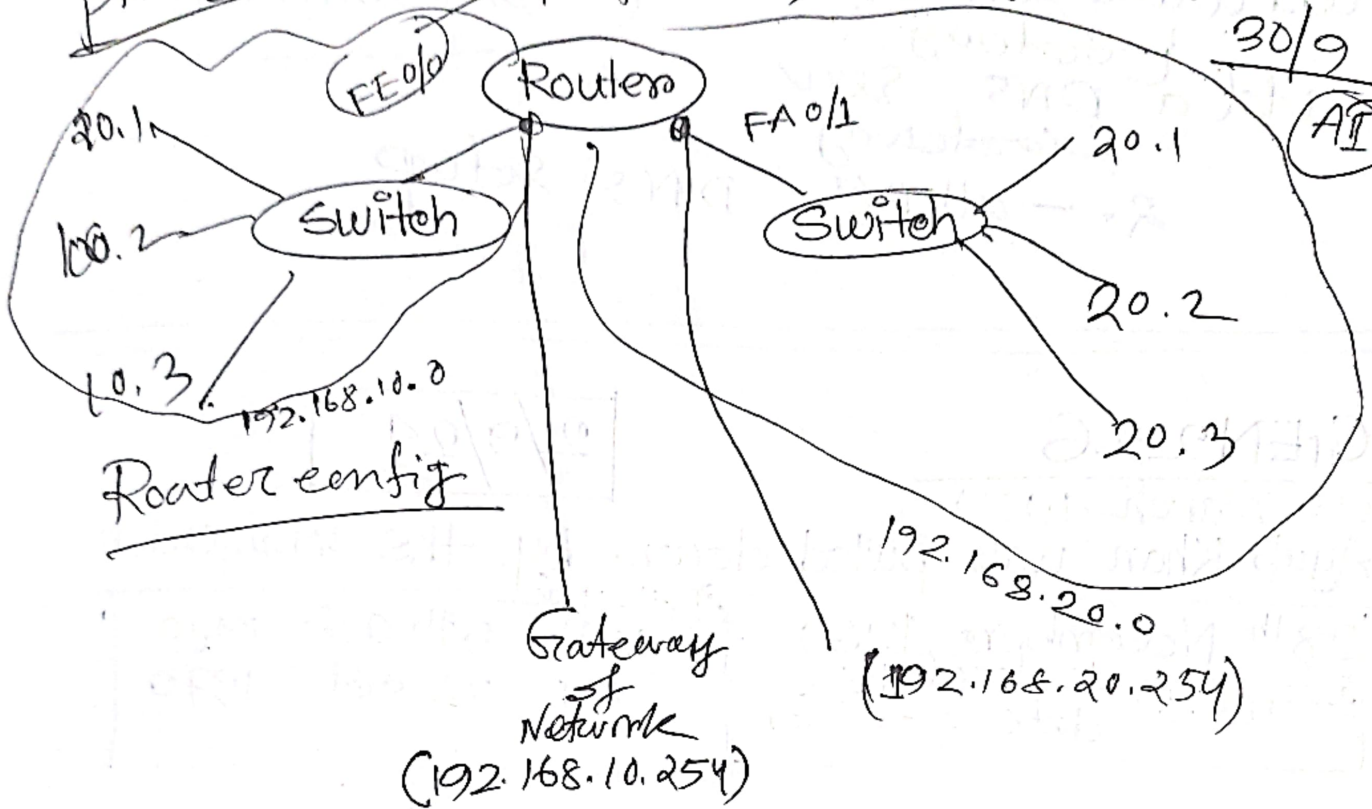 30/9
AI
FE 0/0
Router
FA 0/1
20.1
100.2
10.3
Switch
192.168.10.0
Switch
20.1
20.2
20.3
192.168.20.0
Router config
Gateway
of
Network
(192.168.10.254)
(192.168.20.254)